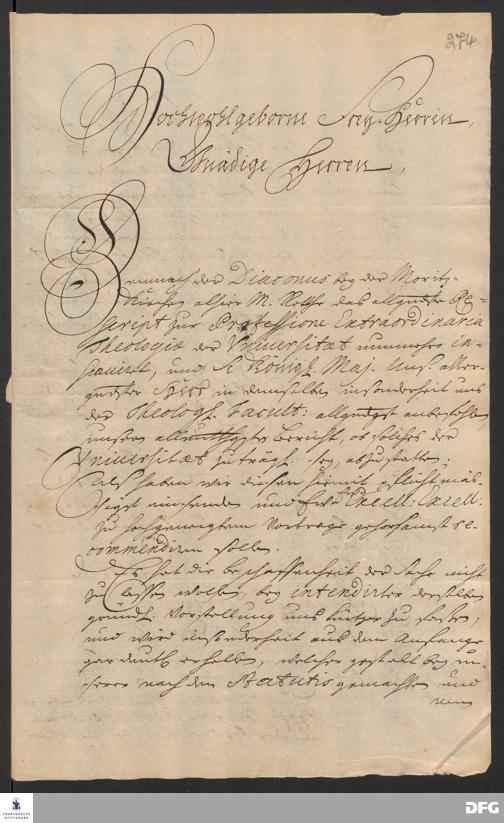 274
Hochwohlgeborne Frey-Herrin,
Gnädige Herren,
Demnach der Diaconus bey der Moritz-
Kirchen alhier M. das allergndste Re-
script zur Professione Extraordinaria
Theologiæ der Universitæt nunmehro in-
sinuiret, und Se Königl. Maj. unser aller-
gndster Herr in demselben insonderheit uns
der Theologs. Facult: allgndgst anbefohlen,
unsern allerunthgsten Bericht, ob solches der
Universitæt zuträgl. sey, abzustatten.
Als haben wir diesen hiemit pflichtmäs-
sigst einsenden und Ew. Excell. Excell:
zu hochgeneigtem Vortrage gehorsamst re-
commendiren sollen.
Es hat die beschaffenheit der Sache nicht
zu Lassen wollen, bey intendirter derselben
gründl. Vorstellung uns kürtzer zu fassen,
und wird insonderheit aus dem Anfange
gar deutl. erhellen, welcher gestalt bey un-
serer nach den Statutis gemachten und
DFG
FRANCKESCHE
STIFTUNGEN